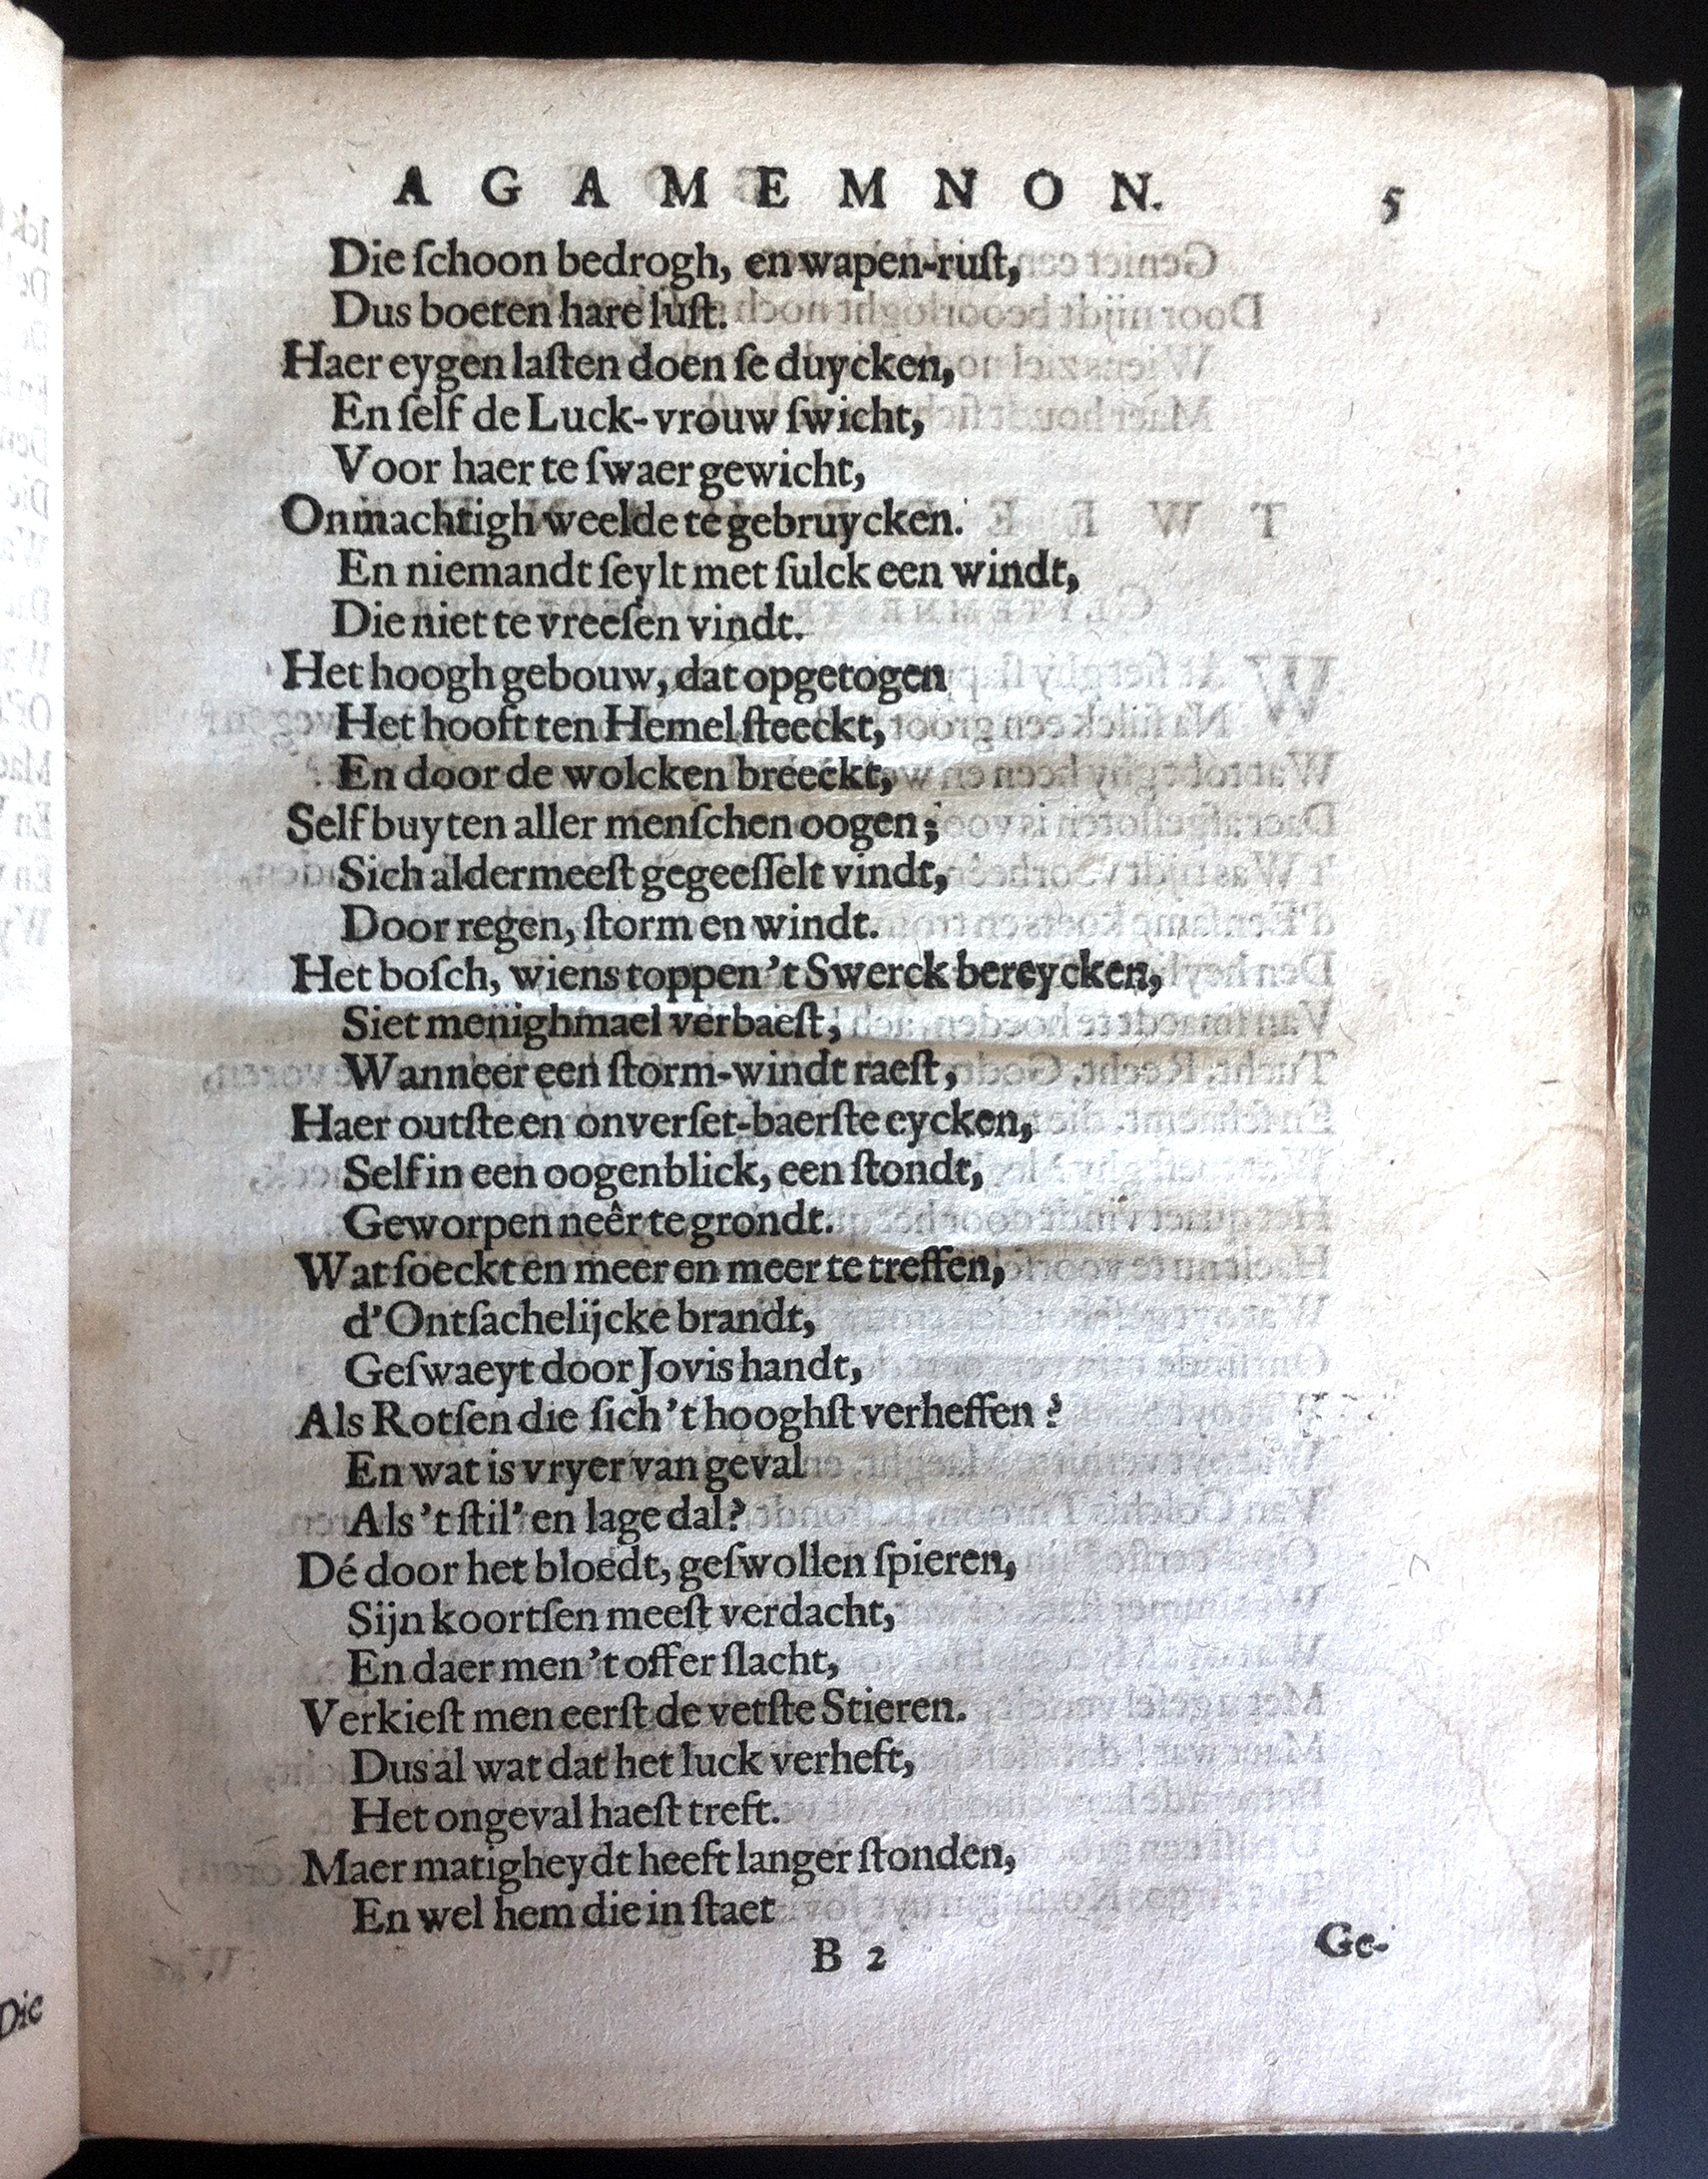 AGAMEMNON. 5
Die ſchoon bedrogh, en wapen-ruſt,
Dus boeten hare luſt.
Haer eygen laſten doen ſe duycken,
En ſelf de Luck-vrouw ſwicht,
Voor haer te ſwaer gewicht,
Onmachtigh weelde te gebruycken.
En niemandt ſeylt met ſulck een windt,
Die niet te vreeſen vindt.
Het hoogh gebouw, dat opgetogen
Het hooft ten Hemel ſteeckt,
En door de wolcken breeckt,
Self buyten aller menſchen oogen;
Sich aldermeeſt gegeeſſelt vindt,
Door regen, ſtorm en windt.
Het boſch, wiens toppen 't Swerck bereycken,
Siet menighmael verbaeſt,
Wanneer een ſtorm-windt raeſt,
Haer outſte en onverſet-baerſte eycken,
Self in een oogenblick, een ſtondt,
Geworpen neêr te grondt.
Wat ſoeckt en meer en meer te treffen,
d'Ontſachelijcke brandt,
Geſwaeyt door Jovis handt,
Als Rotſen die ſich 't hooghſt verheffen?
En wat is vryer van geval
Als 't ſtil' en lage dal?
Dé door het bloedt, geſwollen ſpieren,
Sijn koortſen meeſt verdacht,
En daer men 't offer ſlacht,
Verkieſt men eerſt de vetſte Stieren.
Dus al wat dat het luck verheft,
Het ongeval haeſt treft.
Maer matigheydt heeft langer ſtonden,
En wel hem die in ſtaet
B 2 Ge-
Die